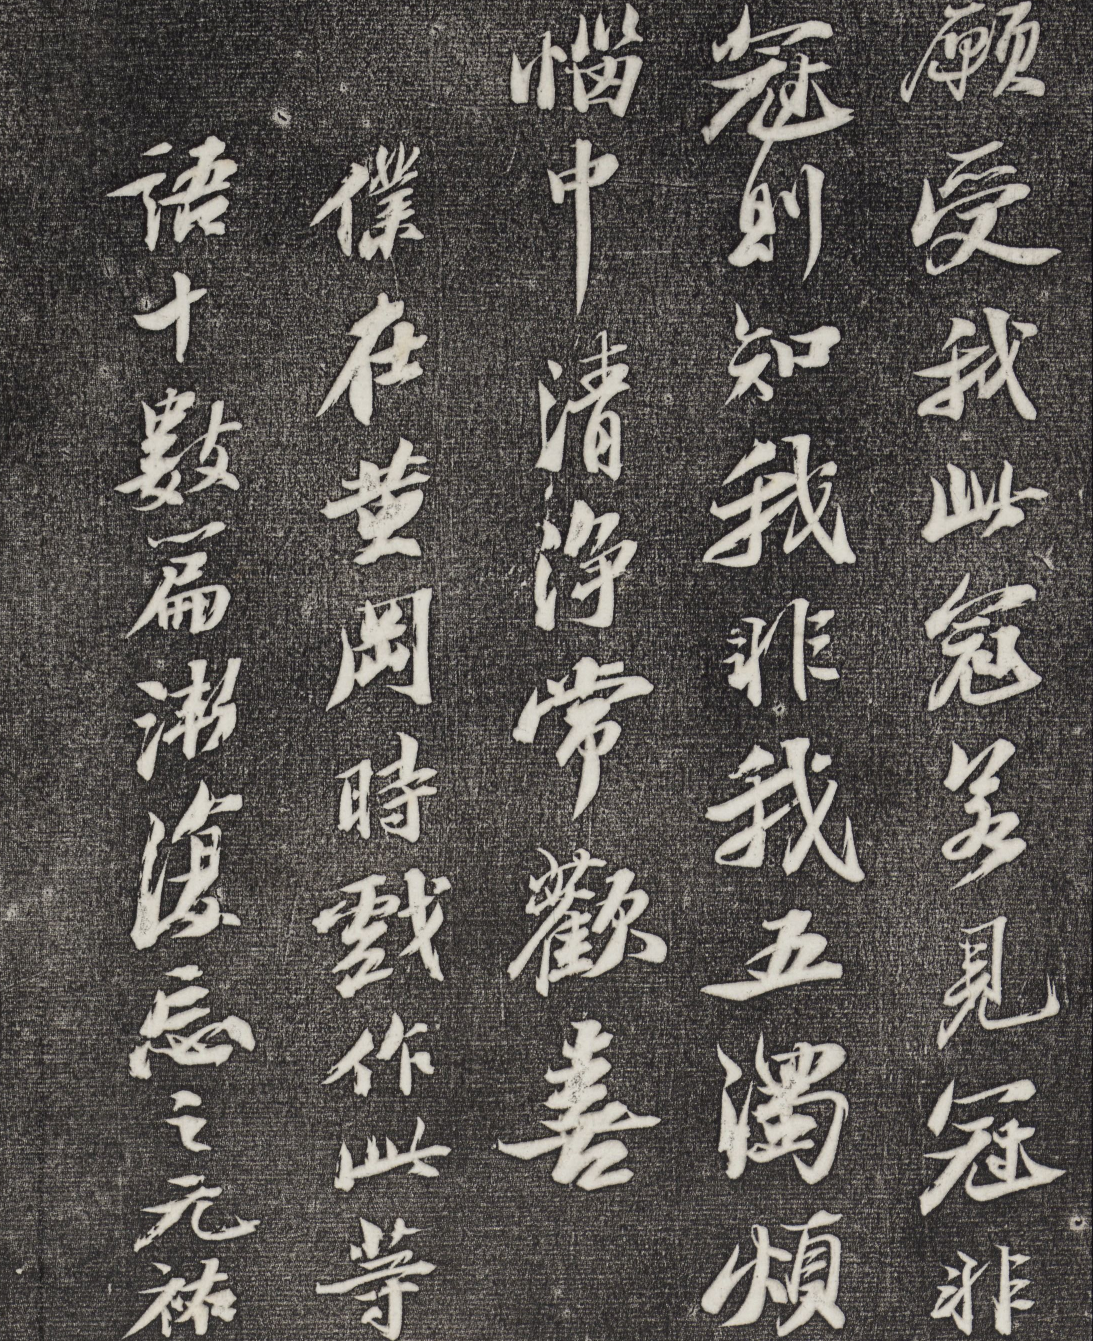 願受我此冠若見冠非
冠則知我非我五濁煩
惱中清淨常歡喜
僕在黃岡時戲作此等
語十數篇漸復忘之元祐